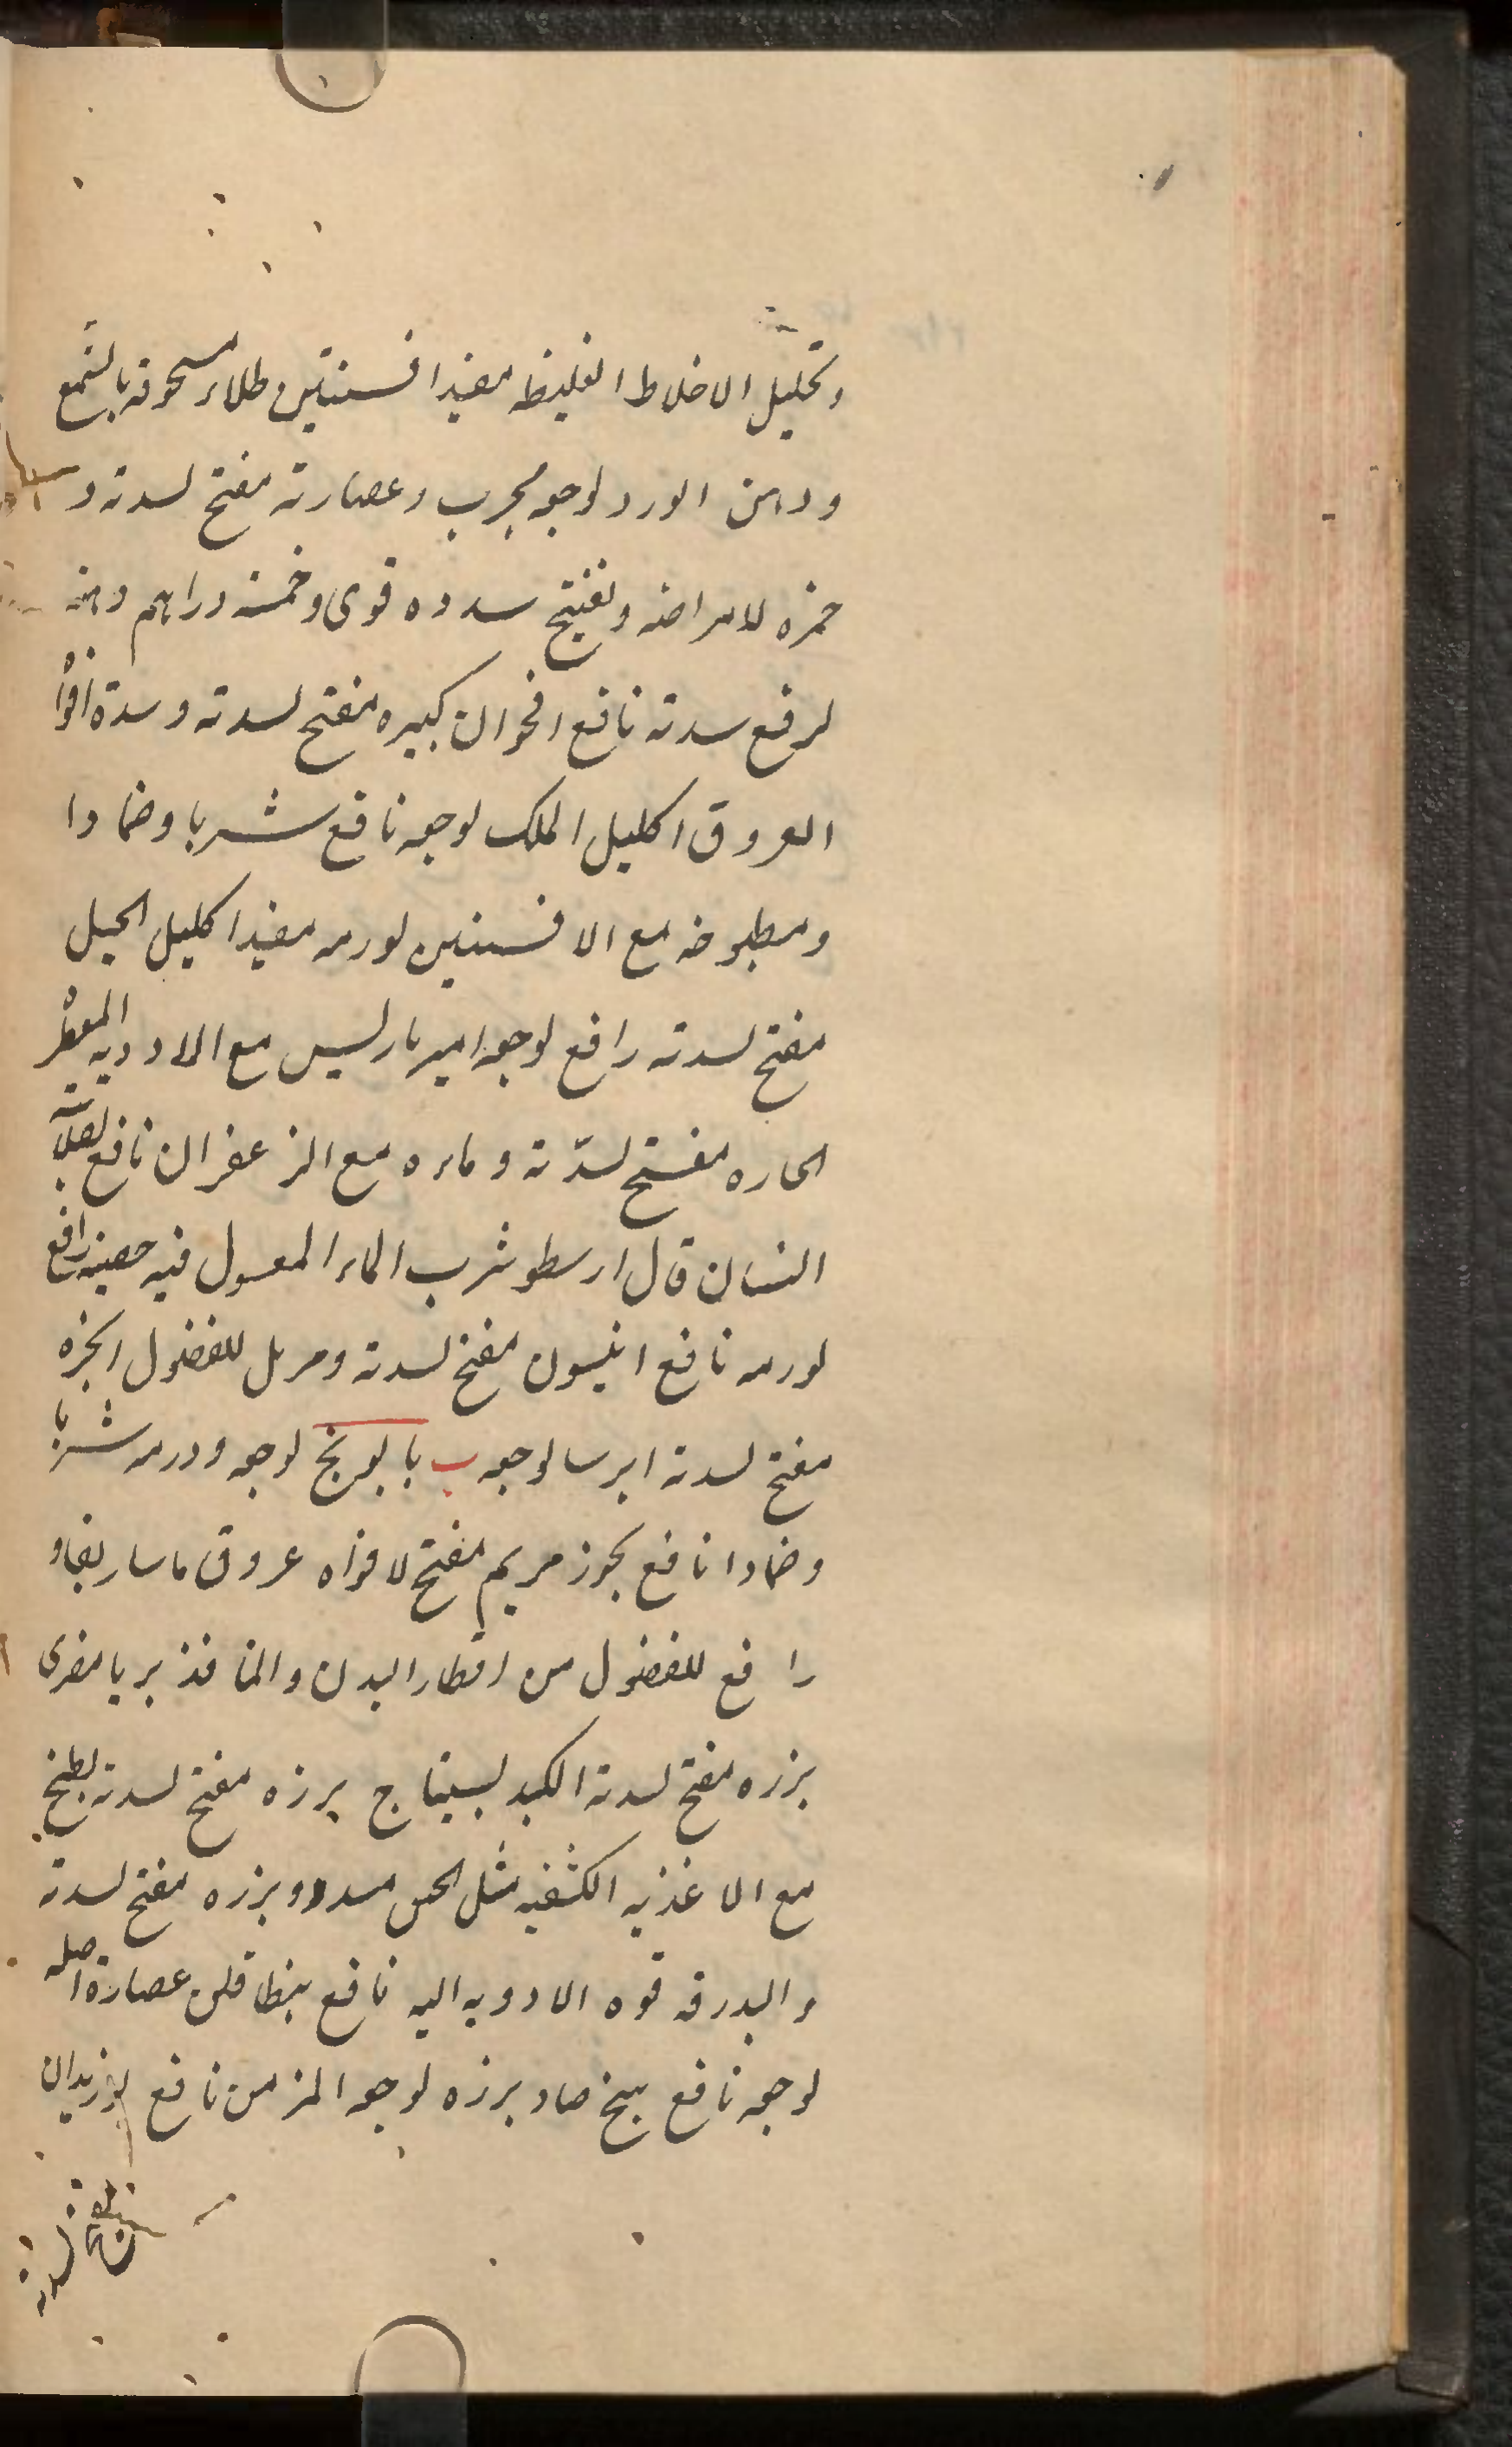 وتحلیل الاخلاط الغلیظه مفید افسنتین طلاء مسحوقه بالشمع
ودهن الورد لوجعه مجرب وعصارته مفتح لسدته و
خمره لامراضه وتفتیح سدده قوی وخمسه دراهم دهنه
لرفع سدته نافع اقحوان کبیره مفتح لسدته وسدة افواه
العروق اکلیل الملک لوجعه نافع شربا وضمادا
ومطبوخه مع الافسنتین لورمه مفید اکلیل الجبل
مفتح لسدته رافع لوجعه امیرباریس مع الادویه المعطره
الحاره مفتح لسدّته وماءه مع الزعفران نافع لعلات
النسان قال ارسطو شرب الماء المغسول فیه رافع
لورمه نافع انیسون مفتح لسدته ومزیل للفضول انجره
مفتح لسدته ایرسا لوجعه ب بابونج لوجعه وورمه شربا
وضمادا نافع بخور مریم مفتح لافواه عروق ماساریقا و
رافع للفضول من اقطار البدن والمنافذ
بزره مفتح لسدة الکبد بسیتاج بزره مفتح لسدته بطیخ
مع الاغذیه الکثیفه مثل الجبن مسدد وبزره مفتح لسدته
والبدرقه قوه الادویه الیه نافع بنطافلن عصارة اصله
لوجعه نافع بیخ صاد بزره لوجعه المزمن نافع بوزیدان
لسدته